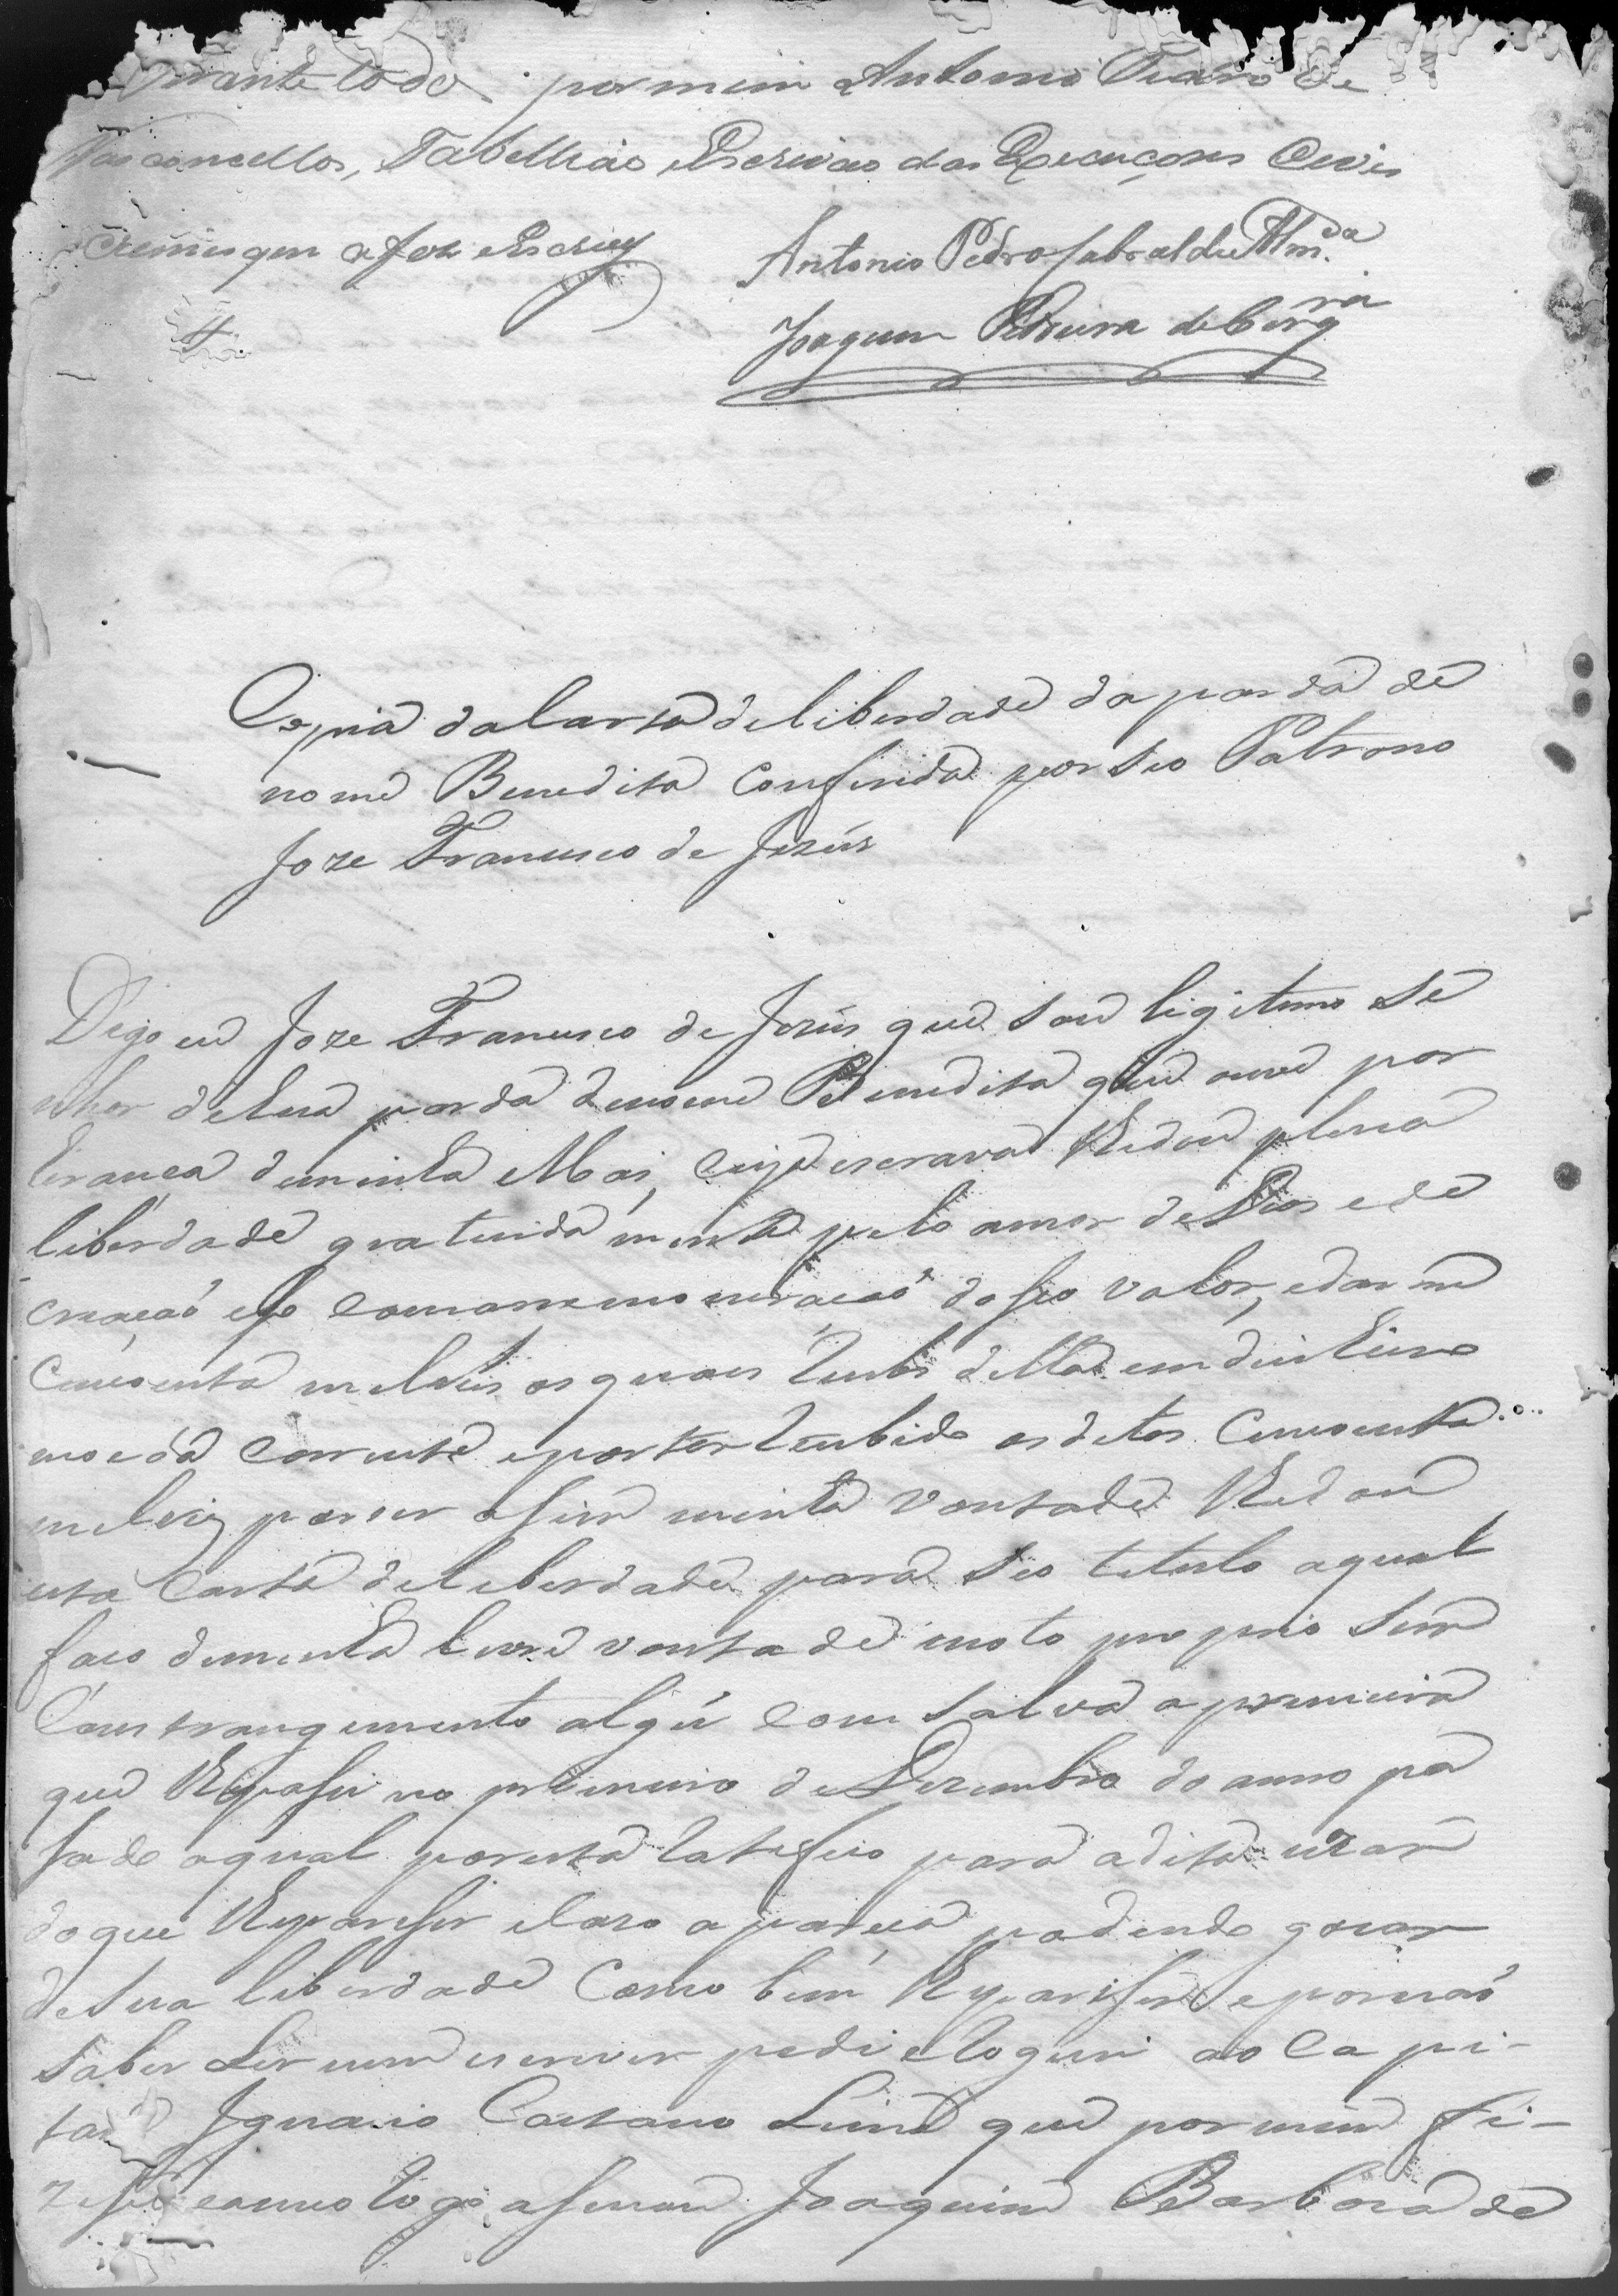 por mim Antonio Pedro de
Vasconcellos, Tabelliaõ Escrivaõ das Execuçoens Civeis
Crimes que o fez escrevy
Antonio Pedro Cabral de Alm.da
Joaquim Ferreira de Cerq.ra
Copia da Carta de liberdade da parda de
nome Benedita conferida por seo Patrono
Joze Francisco de Jezús
Digo eu Joze Francisco de Jezús que sou ligitimo Se
nhor de hua parda de nome Benedita que ouve por
heranca de minha Mai, cuja escrava lhe dou plena
liberdade gratuida mente pelo amor de Deos e de
criacaõ
do seo valor, e dar me
cincoenta mil reis os quaes recebi della em dinheiro
moeda corrente e por ter recebido os ditos cincoenta
mil reis por ser asim minha vontade lhe dou
esta Carta de liberdade para seo titulo a qual
faco de minha livre vontade moto proprio sem
Constrangimento algú com salva a primeira
que lhe pasei no primeiro de Dezembro do anno pa
sado a qual por esta ratefico para a dita uzar
do que lhe pareser e caso apareca podendo gozar
de sua liberdade como bem lhe pareser e por naõ
saber Ler nem escrever pedi e roguei ao Capi-
taõ Ignacio Caetano Lima que por mim fi-
zese como rogo asenou Joaquim Barboza de